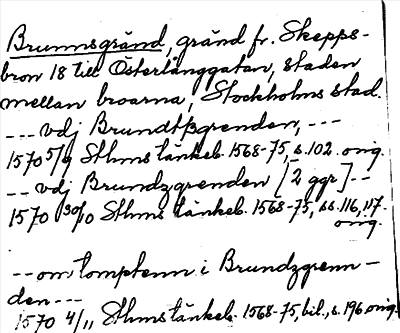 Brunnsgränd, gränd fr. Skepps-
bron 18 till Österlånggatan, staden
mellan broarna, Stockholms stad.
--- vdj Brundtzgrenden, ---
1570 5/9 Sthms tänkeb. 1568-75, s. 102. orig.
-- vdj Brundzgrenden [2 ggr] --
1570 30/10 Sthms tänkeb. 1568-75, ss. 116, 117.
orig.
-- om tomptenn i Brundzgrenn-
den ---
1570 4/11 Sthms tänkeb. 1568-75, bil., s. 196 orig.